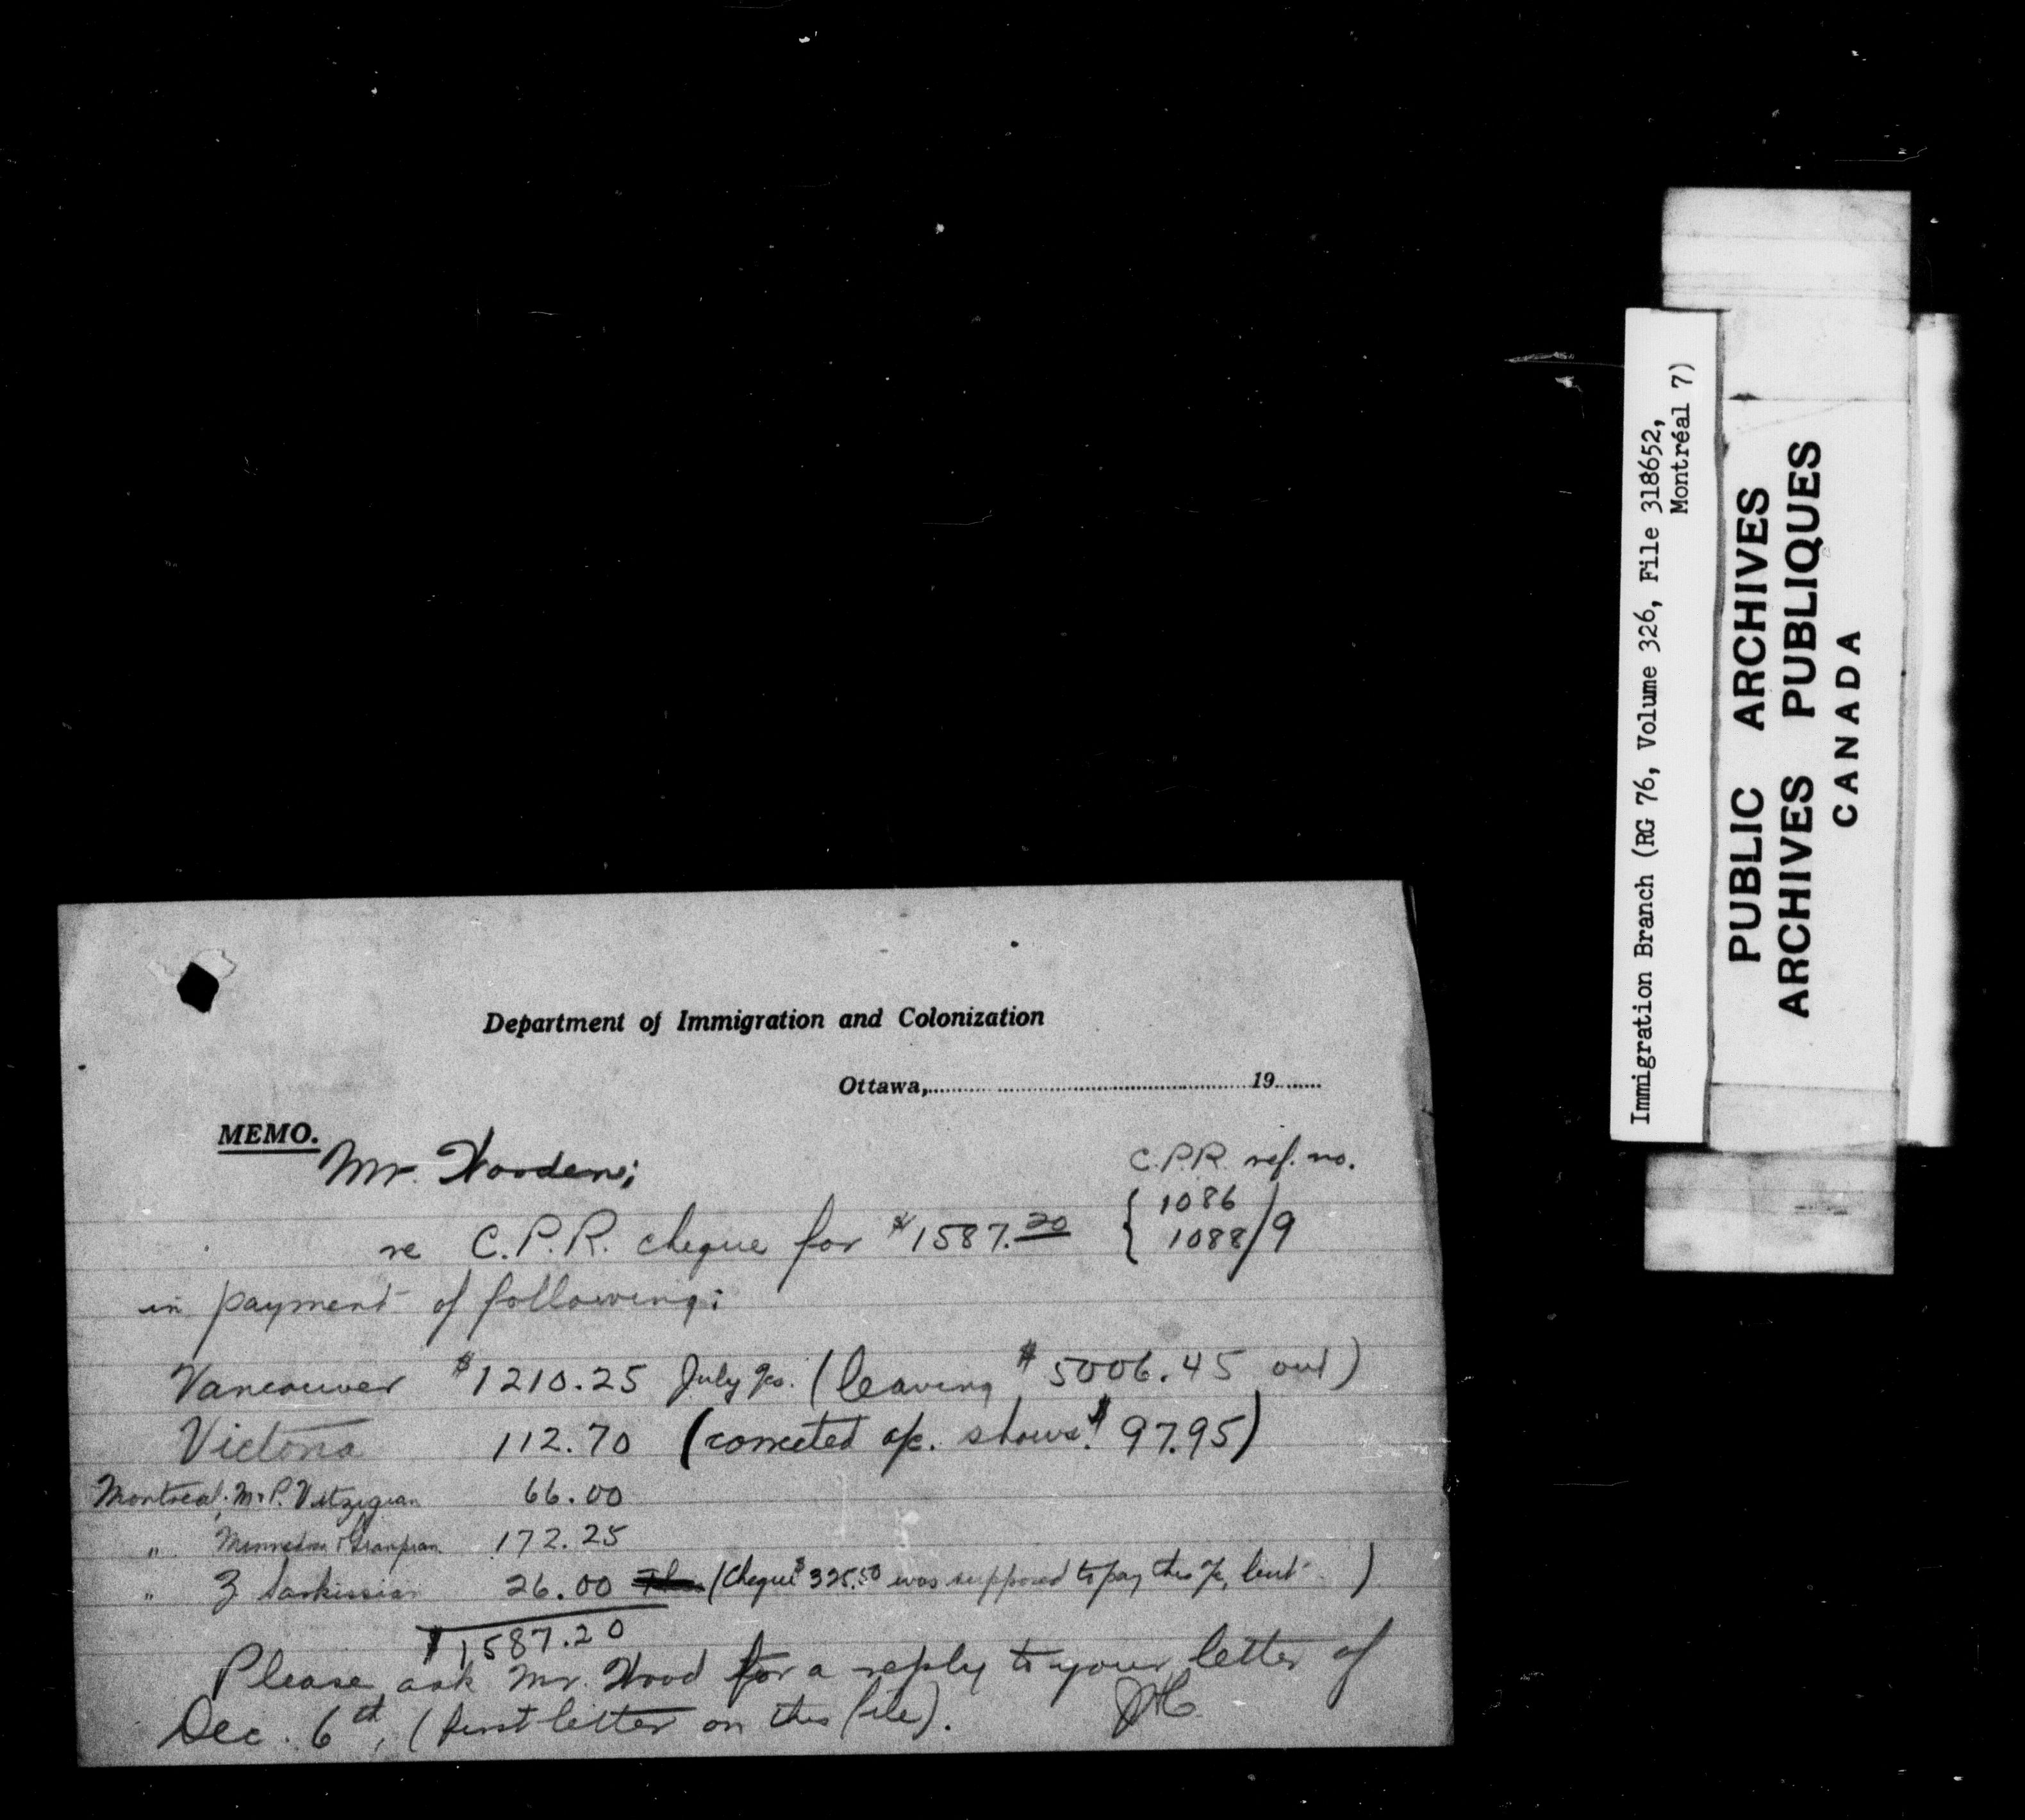 Department of Immigration and Colonization
Ottawa,..............................19.......
MEMO.
Mr. Wooden;
C.P.R. ref. no.
{ 1086
1088/9
re C.P.R. cheque for $1587.20
in payment of following:
Vancouver $1210.25 July %. (leaving $5006.45 out)
Victoria 112.70 (corrected a/c. shows $97.95)
Montreal: M. P. 66.00
" 172.25
" Z Sarkissian 26.00 (Cheque $325.50 was supposed to pay this a/c, but )
$1,587.20
Please ask Mr. Wood for a reply to your letter of
Dec. 6th, (first letter on this file).
Immigration Branch (RG 76, Volume 326, File 318652,
Montréal 7)
PUBLIC ARCHIVES
ARCHIVES PUBLIQUES
CANADA